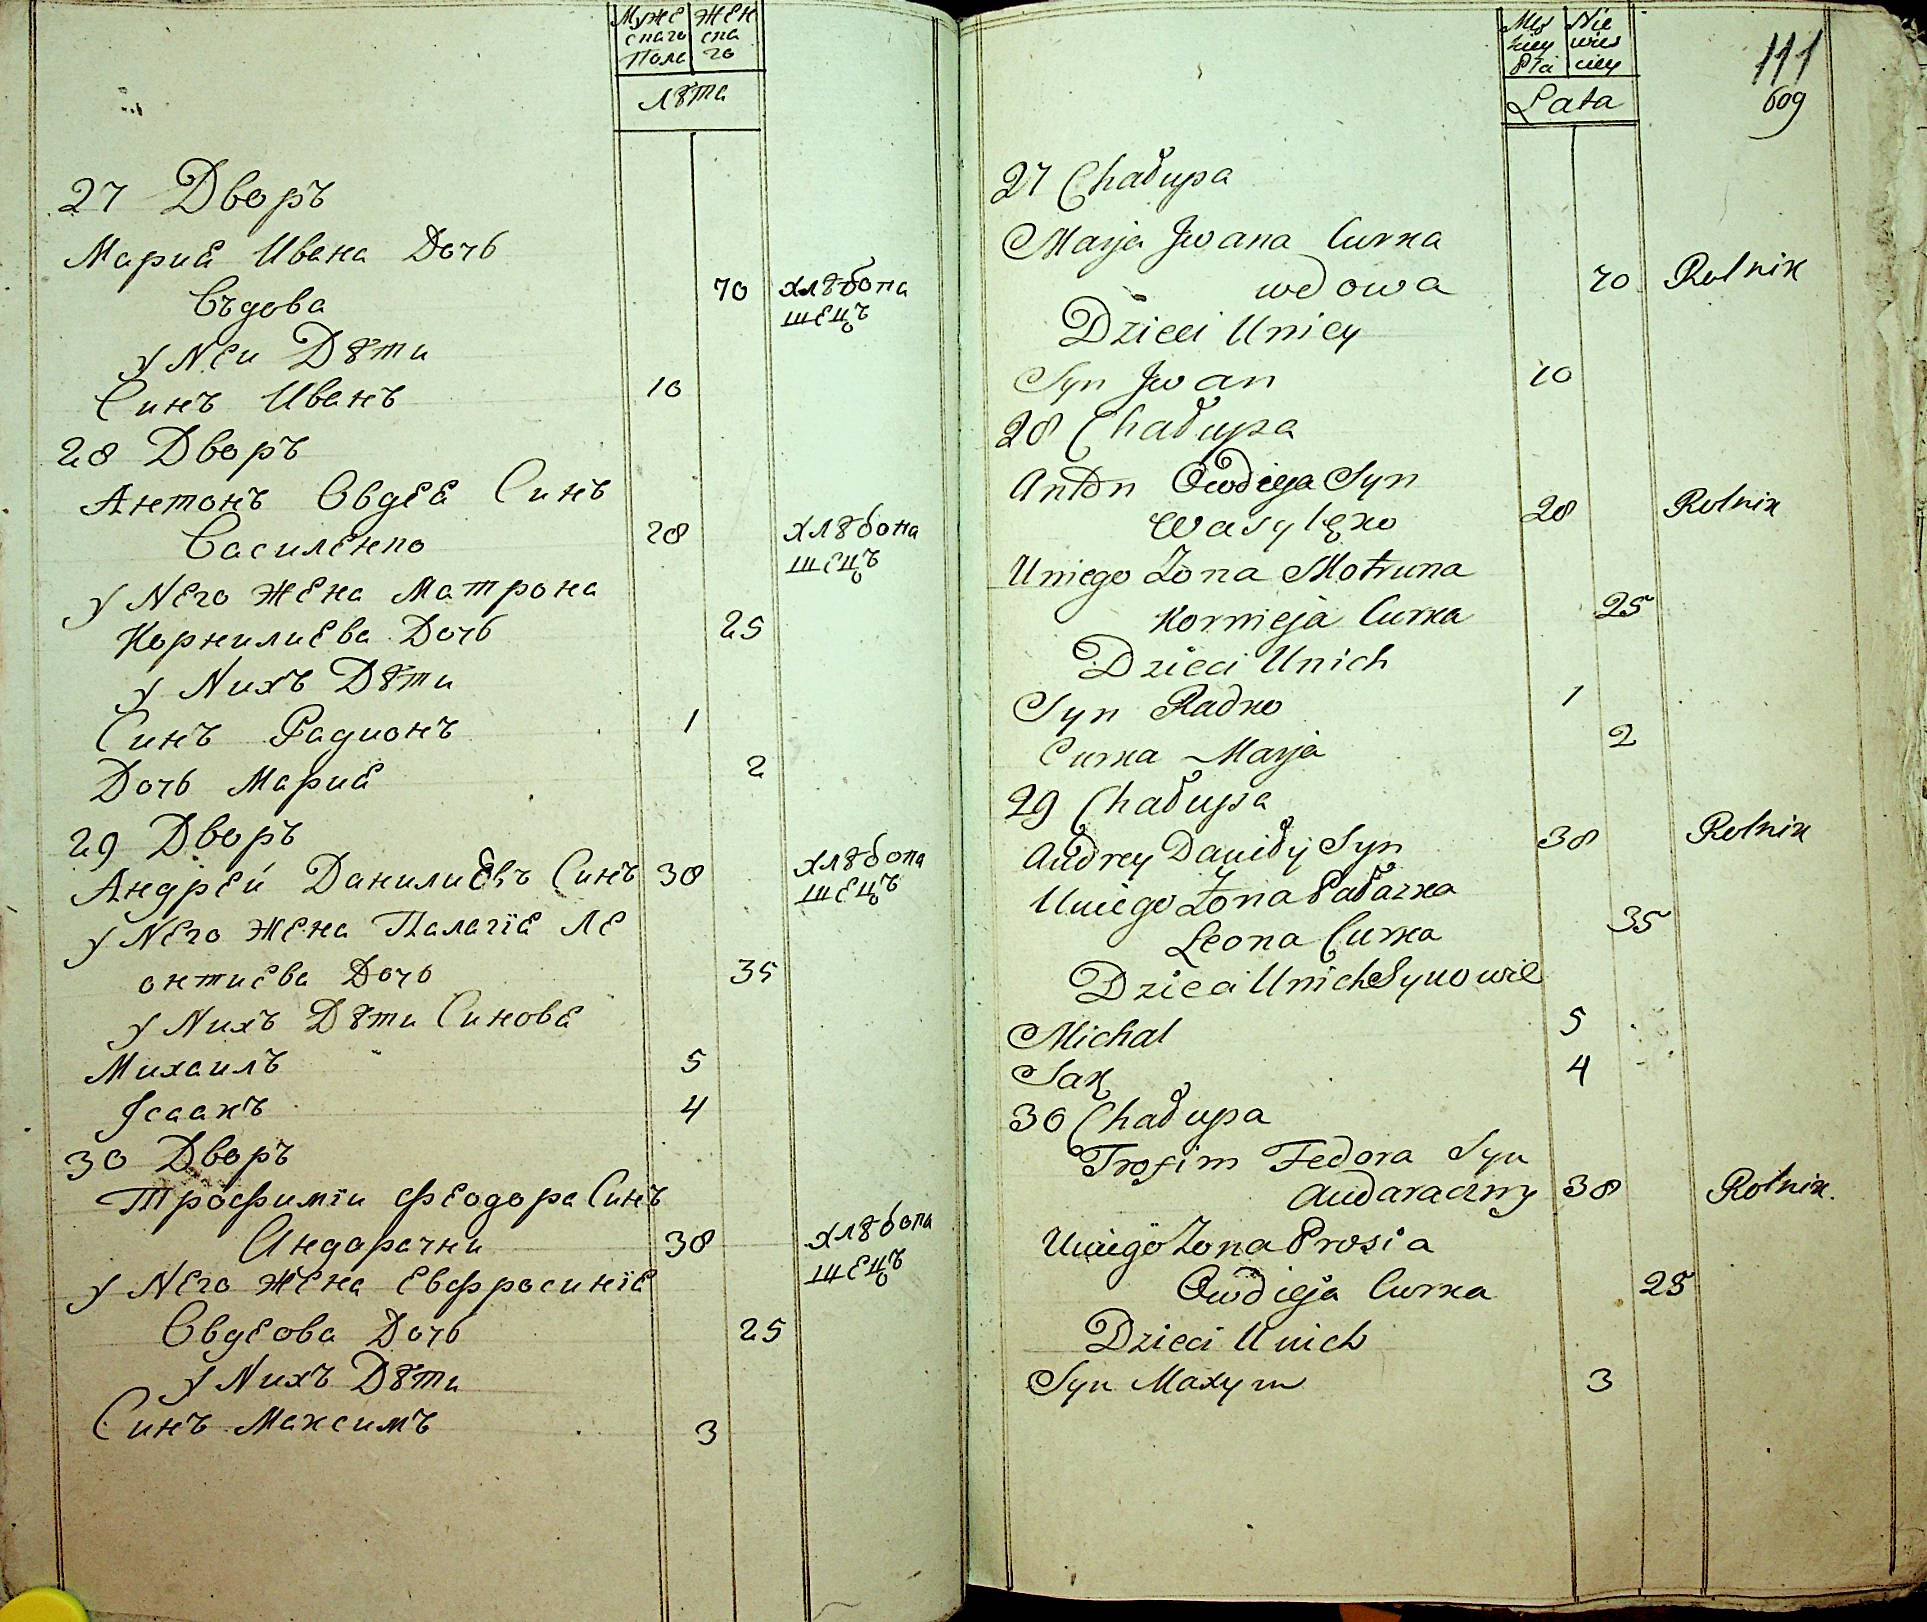 Муже Жен
скаго ска
Пола го
Лѣта
27 Дворъ
Мариѣ Ивана Дочь
Въдова 70 хлѣбопа
шецъ
у Nеи Dѣти
Синъ Иванъ 10
28 Дворъ
Антонъ Овдеѣ Синъ
Василенко 28 хлѣбопа
шецъ
у Nего жена Матрона
Корнилиева Дочь 25
у Nихъ Dѣти
Синъ Радионъ 1
Дочь Мариѣ 2
29 Дворъ
Андрей Данилиевъ Синъ 38 хлѣбопа
шецъ
у Nего жена Палагіе Ле
онтиева Дочь 35
у Nихъ Dѣти Синове
Михаилъ 5
Јсаакъ 4
30 Дворъ
Трофимїи Феодора Синъ
Андарачни 38 хлѣбопа
шецъ
у Nего жена Евфросинїе
Овдеова Дочь 25
у Nихъ Dѣти
Синъ Максимъ 3
Męs Nie
kiey wies
Płci ciey
Lata
111
609
27 Chałupa
Marja Jwana Curka
wdowa 70 Rolnik
Dzieci Uniey
Syn Jwan 10
28 Chałupa
Anton Owdieja Syn
Wasylęko 28 Rolnik
Uniego Żona Motruna
Kornieja Curka 25
Dzieci Unich
Syn Radko 1
Curka Marja 2
29 Chałupa
Andrey Daniły Syn 38 Rolnik
Uniego Żona Pałazka
Leona Curka 35
Dzieci Unich Synowie
Michal 5
Sak 4
30 Chałupa
Trofim Fedora Syn
Andaraczny 38 Rolnik.
Uniego Żona Prosia
Owdieja Curka 25
Dzieci Unich
Syn Maxym 3